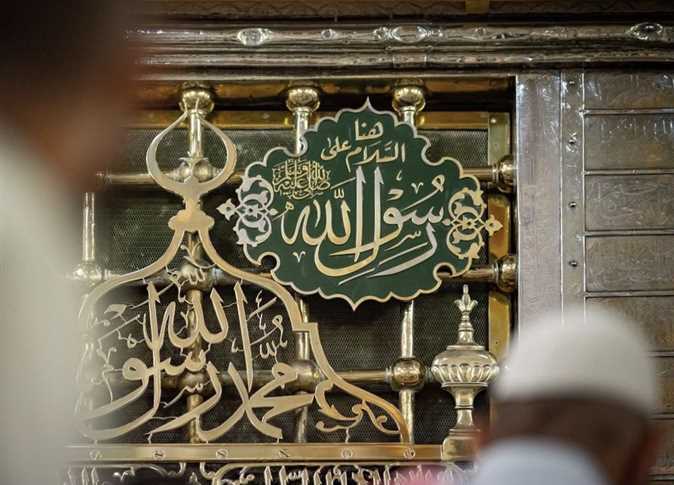 هنا
السلام على
رسول الله
صلى الله عليه وسلم
محمد رسول الله